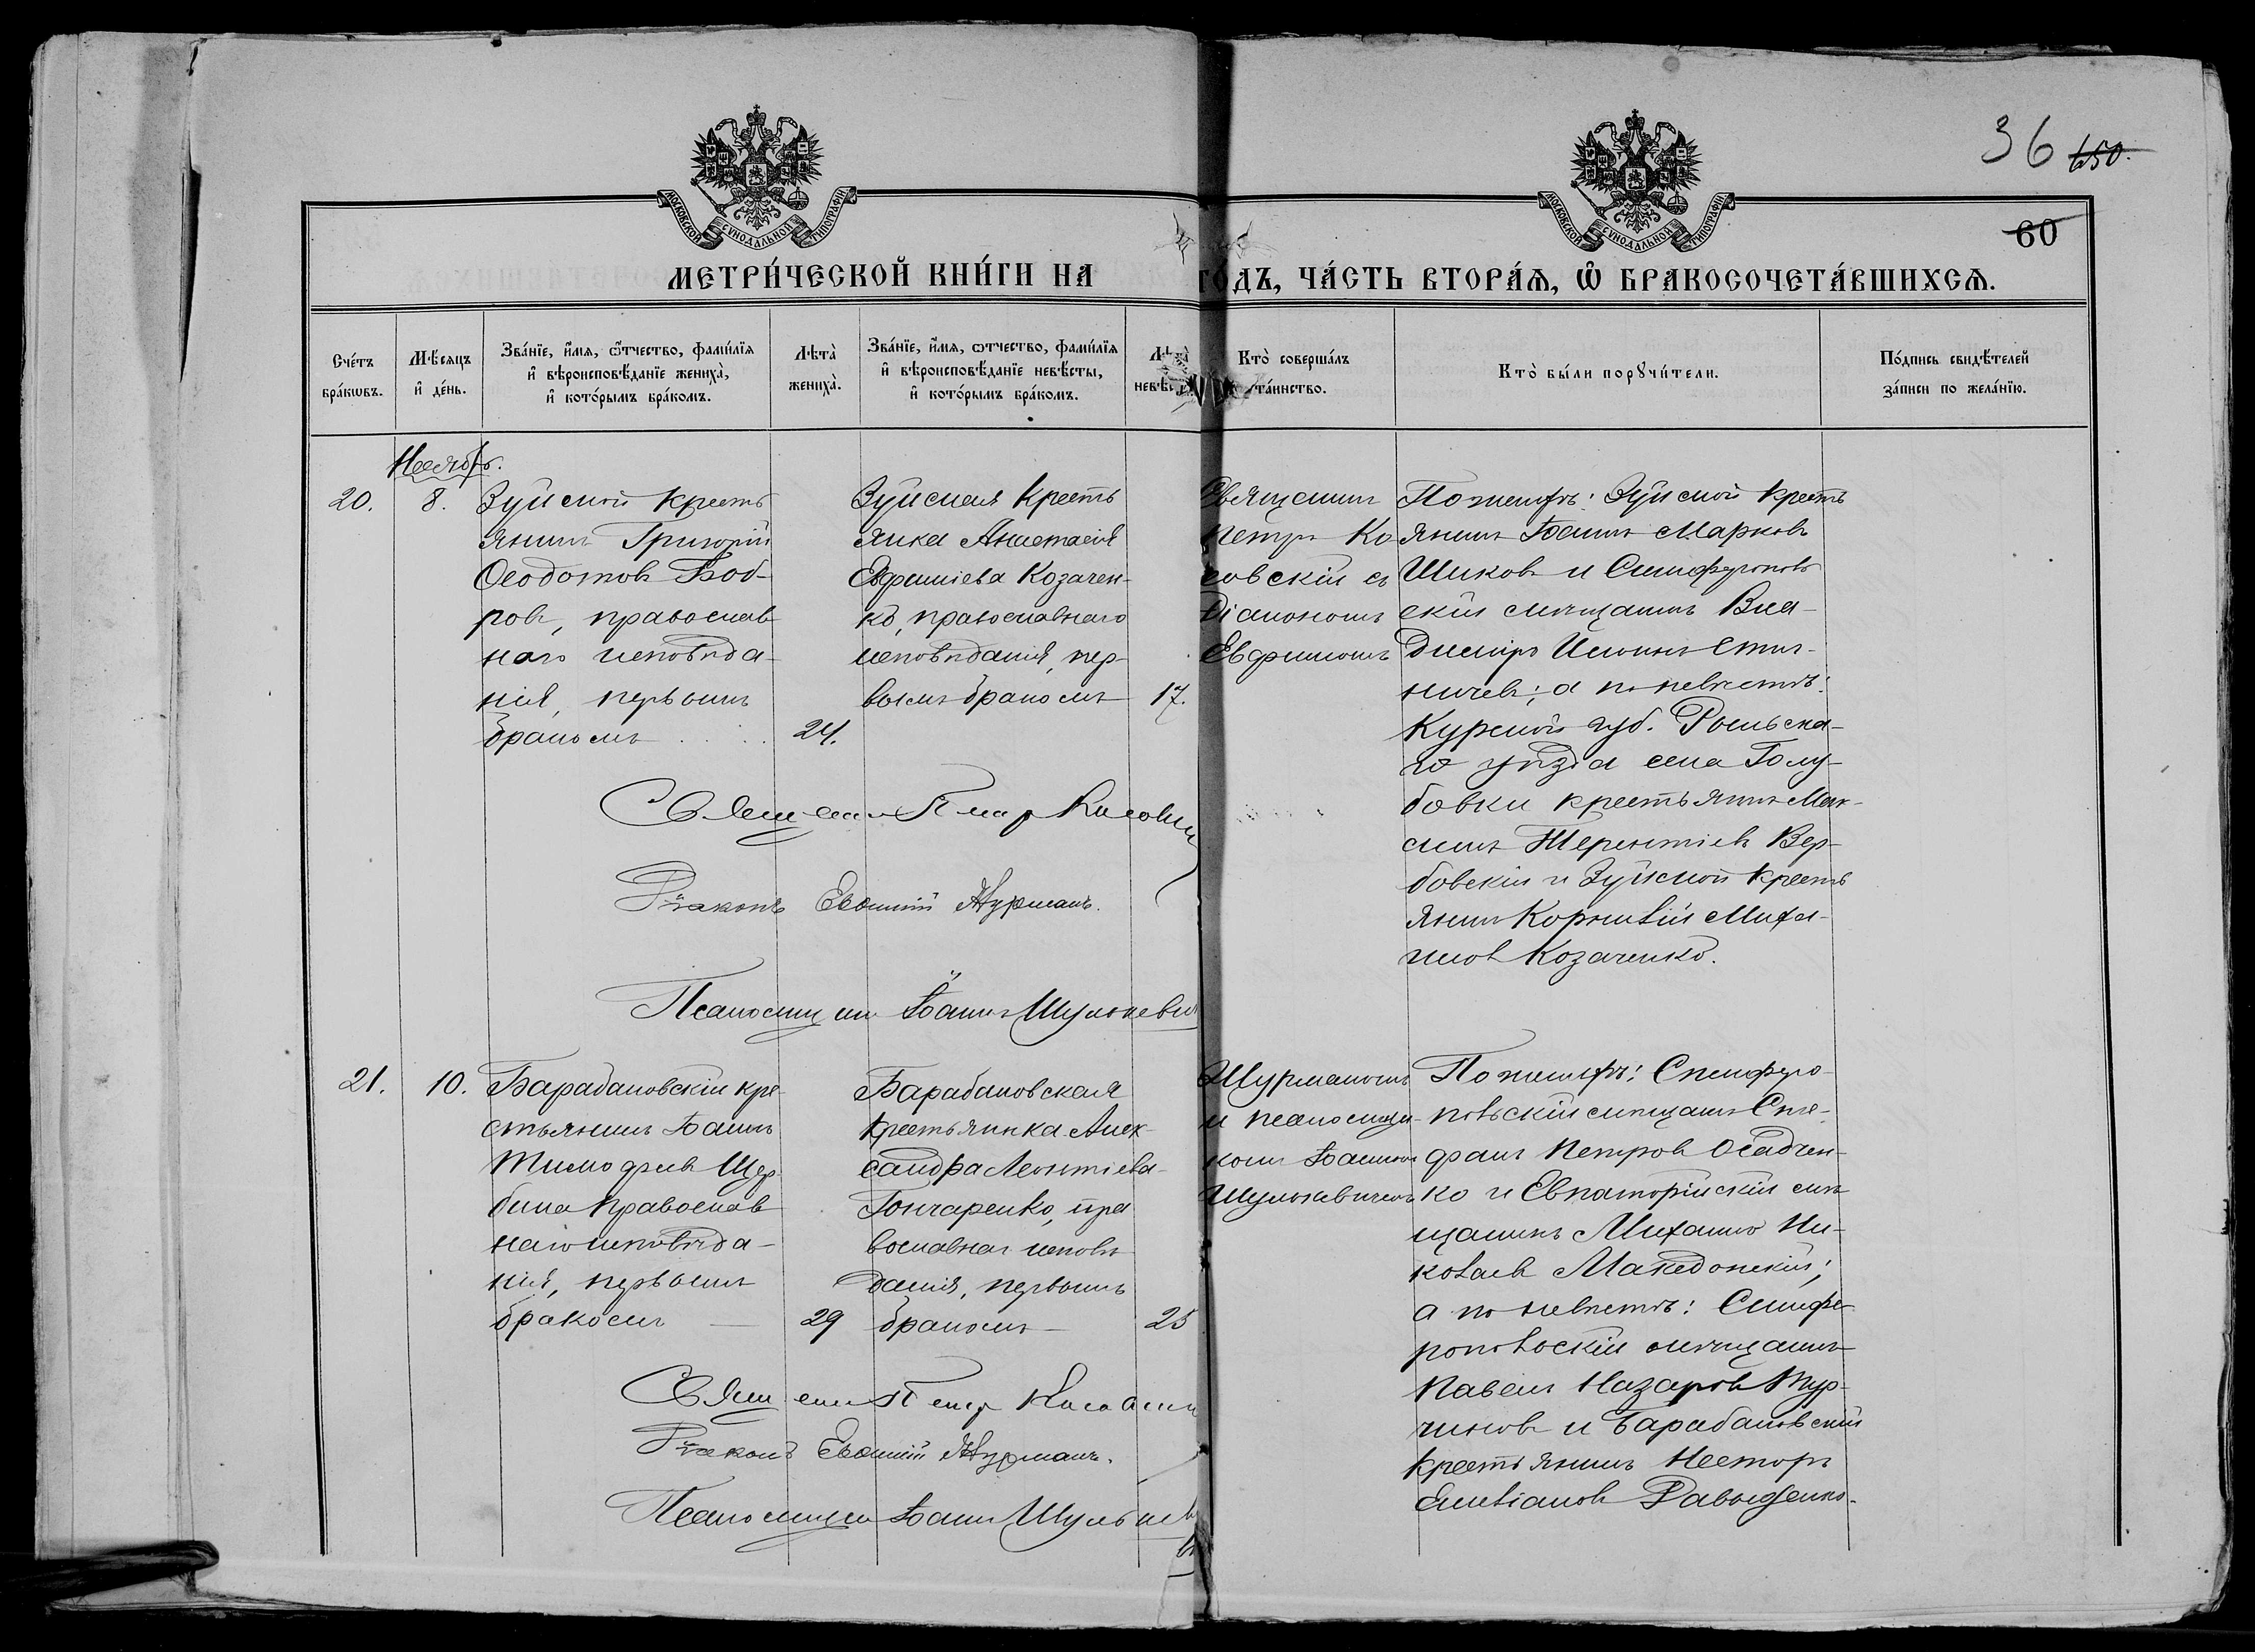 36 650.
60
МОСКОВСКОЙ СѴНОДАЛЬНОЙ ТИПОГРАФІИ
МОСКОВСКОЙ СѴНОДАЛЬНОЙ ТИПОГРАФІИ
МЕТРИ́ЧЕСКОЙ КНИ́ГИ НА ГО́ДЪ, ЧА́СТЬ ВТОРА́Ѧ, Ѽ БРАКОСОЧЕТА́ВШИХСѦ.
Сче́тъ
бра́кѡвъ.
Мѣ́сяцъ
и҆ де́нь.
Зва́нїе, и҆́мѧ, ѻ҆́тчество, фами́лїѧ
и҆ вѣроисповѣ́данїе жениха̀,
и҆ кото́рымъ бра́комъ.
Лѣта̀
жениха̀.
Зва́нїе, и҆́мѧ, ѻ҆́тчество, фами́лїѧ
и҆ вѣроисповѣ́данїе невѣ́сты,
и҆ кото́рымъ бра́комъ.
Лѣта̀
невѣ́сты.
Кто̀ соверша́лъ
та́инство.
Кто̀ бы́ли порꙋчи́тели.
По́дпись свидѣ́телей
за́писи по жела́нїю.
Ноябрь.
20.
8.
Зуйской кресть
янинъ Григорій
Ѳеодотовъ Боб-
ровъ, православ
наго исповѣда-
нія, первымъ
бракомъ . . . .
24.
Зуйская кресть
янка Анастасія
Евфиміева Козачен-
ко, православнаго
исповѣданія, пер-
вымъ бракомъ
17.
Священникъ
Петръ Ко
совскій съ
діакономъ
Евфиміемъ
По женихѣ: Зуйской кресть
янинъ Іоаннъ Марковъ
Шиковъ и Симферополь
скій мѣщанинъ Вла-
диміръ
ничевъ; а по невѣстѣ:
Курской губ. Рыльска-
го уѣзда села Голу-
бовки крестьянинъ Мак-
симъ Терентіевъ Вер-
бовскій и Зуйской кресть
янинъ Корнилій Миха-
иловъ Козаченко.
Священ. Петръ Косовскій
Діаконъ Евѳимій Шурманъ.
Псаломщикъ Іоаннъ Шулькевичъ
21.
10.
Барабановскій кре-
стьянинъ Іоаннъ
Тимофеевъ Щер
бина православ
наго исповѣда-
нія, первымъ
бракомъ —
29
Барабановская
крестьянка Алек-
сандра Леонтіева-
Гончаренко, пра
вославнаг исповѣ
данія, первымъ
бракомъ —
25
Шурманомъ
и псаломщи-
комъ Іоанномъ
Шулькевичемъ
По женихѣ: Симферо-
польскій мѣщанинъ Сте-
фанъ Петровъ Осадчен-
ко и Евпаторійскій мѣ
щанинъ Михаилъ Ни-
колаевъ Македонскій;
а по невѣстѣ: Симфе-
ропольскій мѣщанинъ
Павелъ Назаровъ Тур-
чиновъ и Барабановскій
крестьянинъ Несторъ
Емеліановъ Давыденко.
Священ. Петръ Косовскій
Діаконъ Евѳимій Шурманъ.
Псаломщикъ Іоаннъ Шулькевичъ